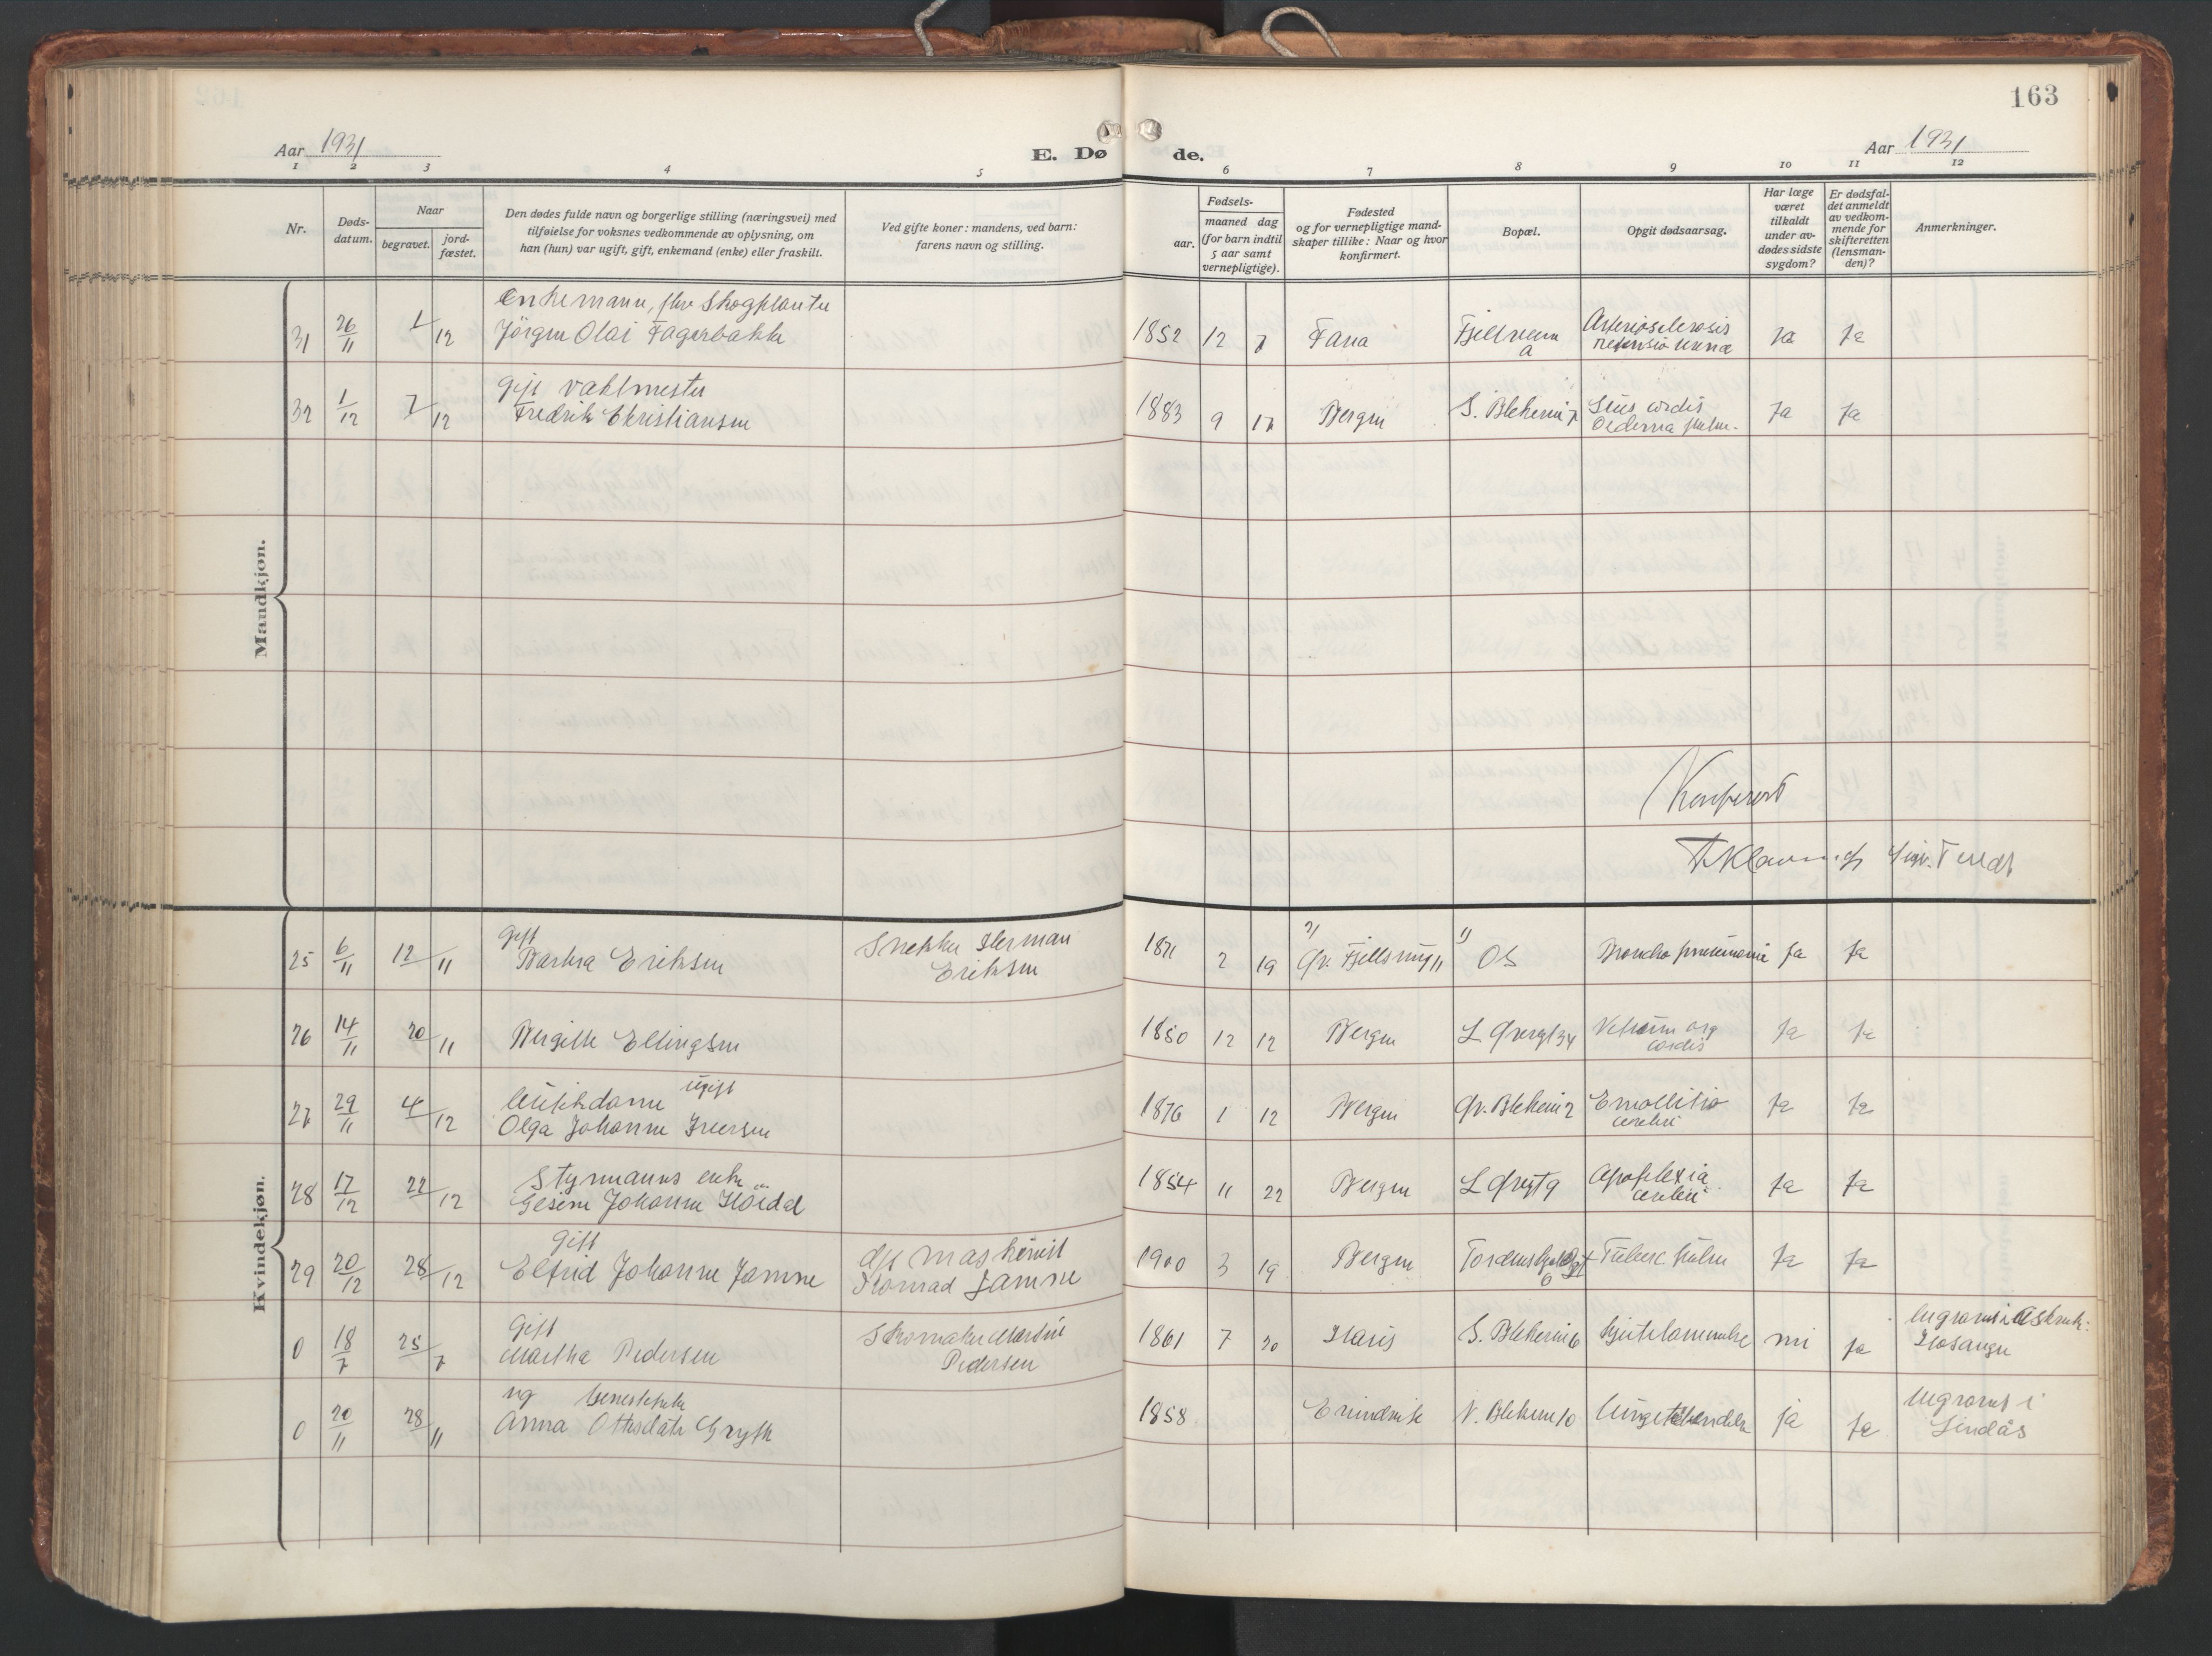 163
Aar 1931
E. Dø de.
Aar 1931
1 2 3 4 5 6 7 8 9 10 11 12
Nr.
Døds-
datum.
Naar
begravet.
jord-
fæstet.
Den dødes fulde navn og borgerlige stilling (næringsvei) med
tilføielse for voksnes vedkommende av oplysning, om
han (hun) var ugift, gift, enkemand (enke) eller fraskilt.
Ved gifte koner: mandens, ved barn:
farens navn og stilling.
Fødsels-
aar.
maaned dag
(for barn indtil
5 aar samt
vernepligtige).
Fødested
og for vernepligtige mand-
skaper tillike: Naar og hvor
konfirmert.
Bopæl.
Opgit dødsaarsag.
Har læge
været
tilkaldt
under av-
dødes sidste
sygdom?
Er dødsfal-
det anmeldt
av vedkom-
mende for
skifteretten
(lensman-
den)?
Anmerkninger.
Mandkjøn.
Enkemann, fhv Skogplanter
31 26/11 1/12 Jörgen Olai Fagerbakke 1852 12 7 Fana Fjellveien Arteriosclerosis Ja Ja
a retensio urinæ
Gift Vaktmester
32 1/12 7/12 Fredrik Christiansen 1883 9 17 Bergen S. Blekevei 7 cordis Ja Ja
Oedema pulm.
Konferert
Sigv. Tendt
Kvindekjøn.
Gift
25 6/11 12/11 Barbra Eriksen Snekker Herman 1871 2 19 Gr. 11 Os Broncho pneumonie Ja Ja
Eriksen
26 14/11 20/11 Bergitte Ellingsen 1850 12 12 Bergen L Øvregt 34 Vitium org Ja Ja
cordis
ugift
27 29/11 4/12 Butikdame 1876 1 12 Bergen Gr. Blekevei 2 Emollitio Ja Ja
Olga Johanne Iversen cerebri
Styrmanns enke
28 17/12 22/12 Gesine Johanne Höidal 1854 11 22 Bergen L Øvregt 9 Apoplexia Ja Ja
cerebri
Gift
29 20/12 28/12 Elfrid Johanne Jamne maskinist 1900 3 19 Bergen Tuberc. pulm Ja Ja
Konrad Jamne 6
Gift
0 18/7 25/7 Martha Pedersen Skomaker Martin 1861 7 20 Haus S. Blekevei 6 Hjertelammelse nei Ja
Pedersen Hosanger
ug
0 20/11 28/11 Anna 1858 Eivindvik N. Blekevei 10 Lungebetendelse Ja Ja Begravet i
Lindås